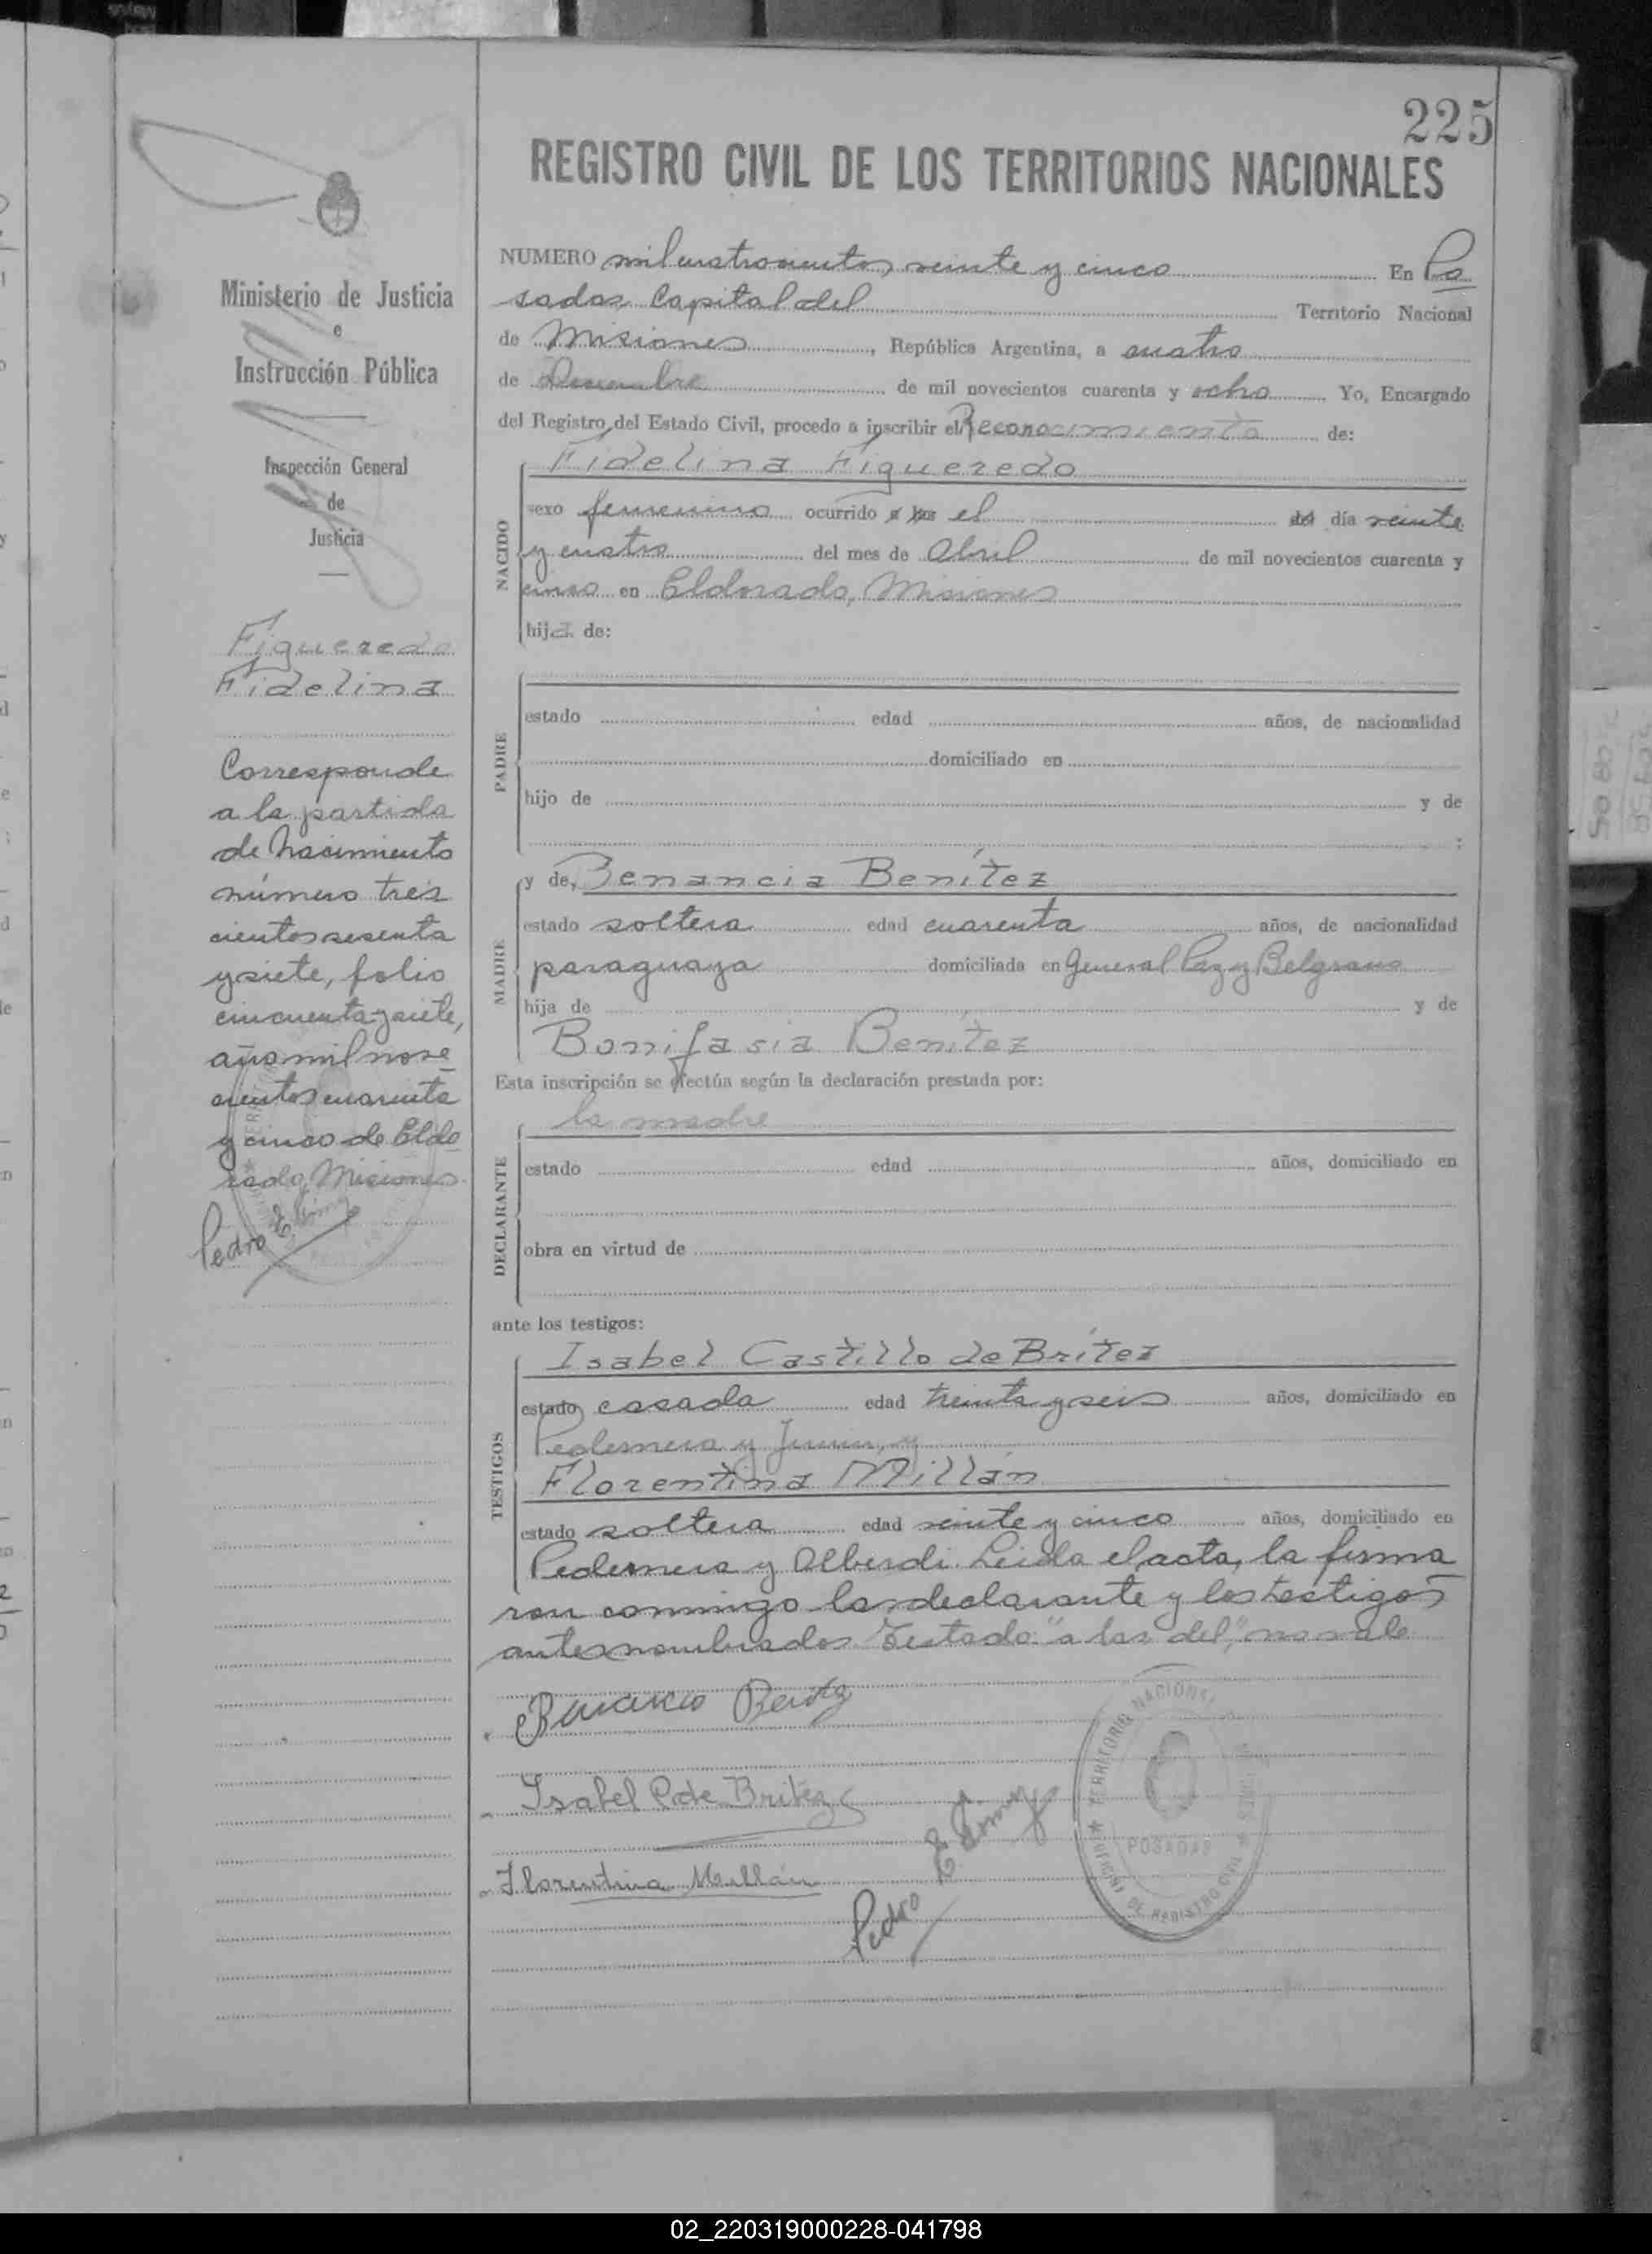 225
REGISTRO CIVIL DE LOS TERRITORIOS NACIONALES
Ministerio de Justicia
e
Instrucción Pública
Inspección General
de
Justicia
Figueredo
Fidelina
Corresponde
a la partida
de Nacimiento
número tres
cientos sesenta
y siete, folio
cincuenta y siete,
año mil nove
cientos cuarenta
y cinco de Eldo
rado, Misiones.
Pedro E.
NUMERO mil cuatrocientos veinte y cinco En Po
sadas Capital del Territorio Nacional
de Misiones, República Argentina, a cuatro
de Diciembre de mil novecientos cuarenta y ocho Yo, Encargado
del Registro del Estado Civil, procedo a inscribir el Reconocimiento de:
Fidelina Figueredo
NACIDO
sexo femenino ocurrido a las el del día veinte
y cuatro del mes de Abril de mil novecientos cuarenta y
cinco en Eldorado, Misiones
hija de:
PADRE
estado edad años, de nacionalidad
domiciliado en
hijo de y de
;
y de, Benancia Benítez
MADRE
estado soltera edad cuarenta años, de nacionalidad
paraguaya domiciliada en General Paz y Belgrano
hija de y de
Bonifasia Benítez
Esta inscripción se efectúa según la declaración prestada por:
la madre
DECLARANTE
estado edad años, domiciliado en
obra en virtud de
ante los testigos:
TESTIGOS
Isabel Castillo de Brítez
estado casada edad treinta y seis años, domiciliado en
Pedernera y Junin, y
Florentina Millán
estado soltera edad veinte y cinco años, domiciliado en
Pedernera y Alberdi. Leida el acta, la firma
ron conmigo la declarante y los testigos
antes nombrados Testado: "a las del", no vale
Benancia Benitez
Isabel C de Britez
Florentina Millán
Pedro E.
TERRITORIO NACIONAL
POSADAS
OFICINA DE REGISTRO CIVIL
02_220319000228-041798